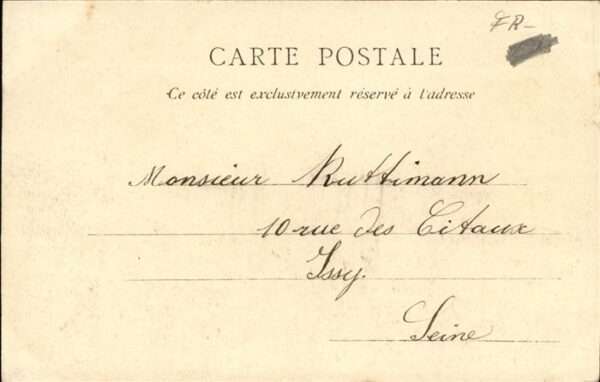 FR-
CARTE POSTALE
Ce côté est exclusivement réservé à l'adresse
Monsieur Ruttimann
10 rue des Citaux
Issy.
Seine